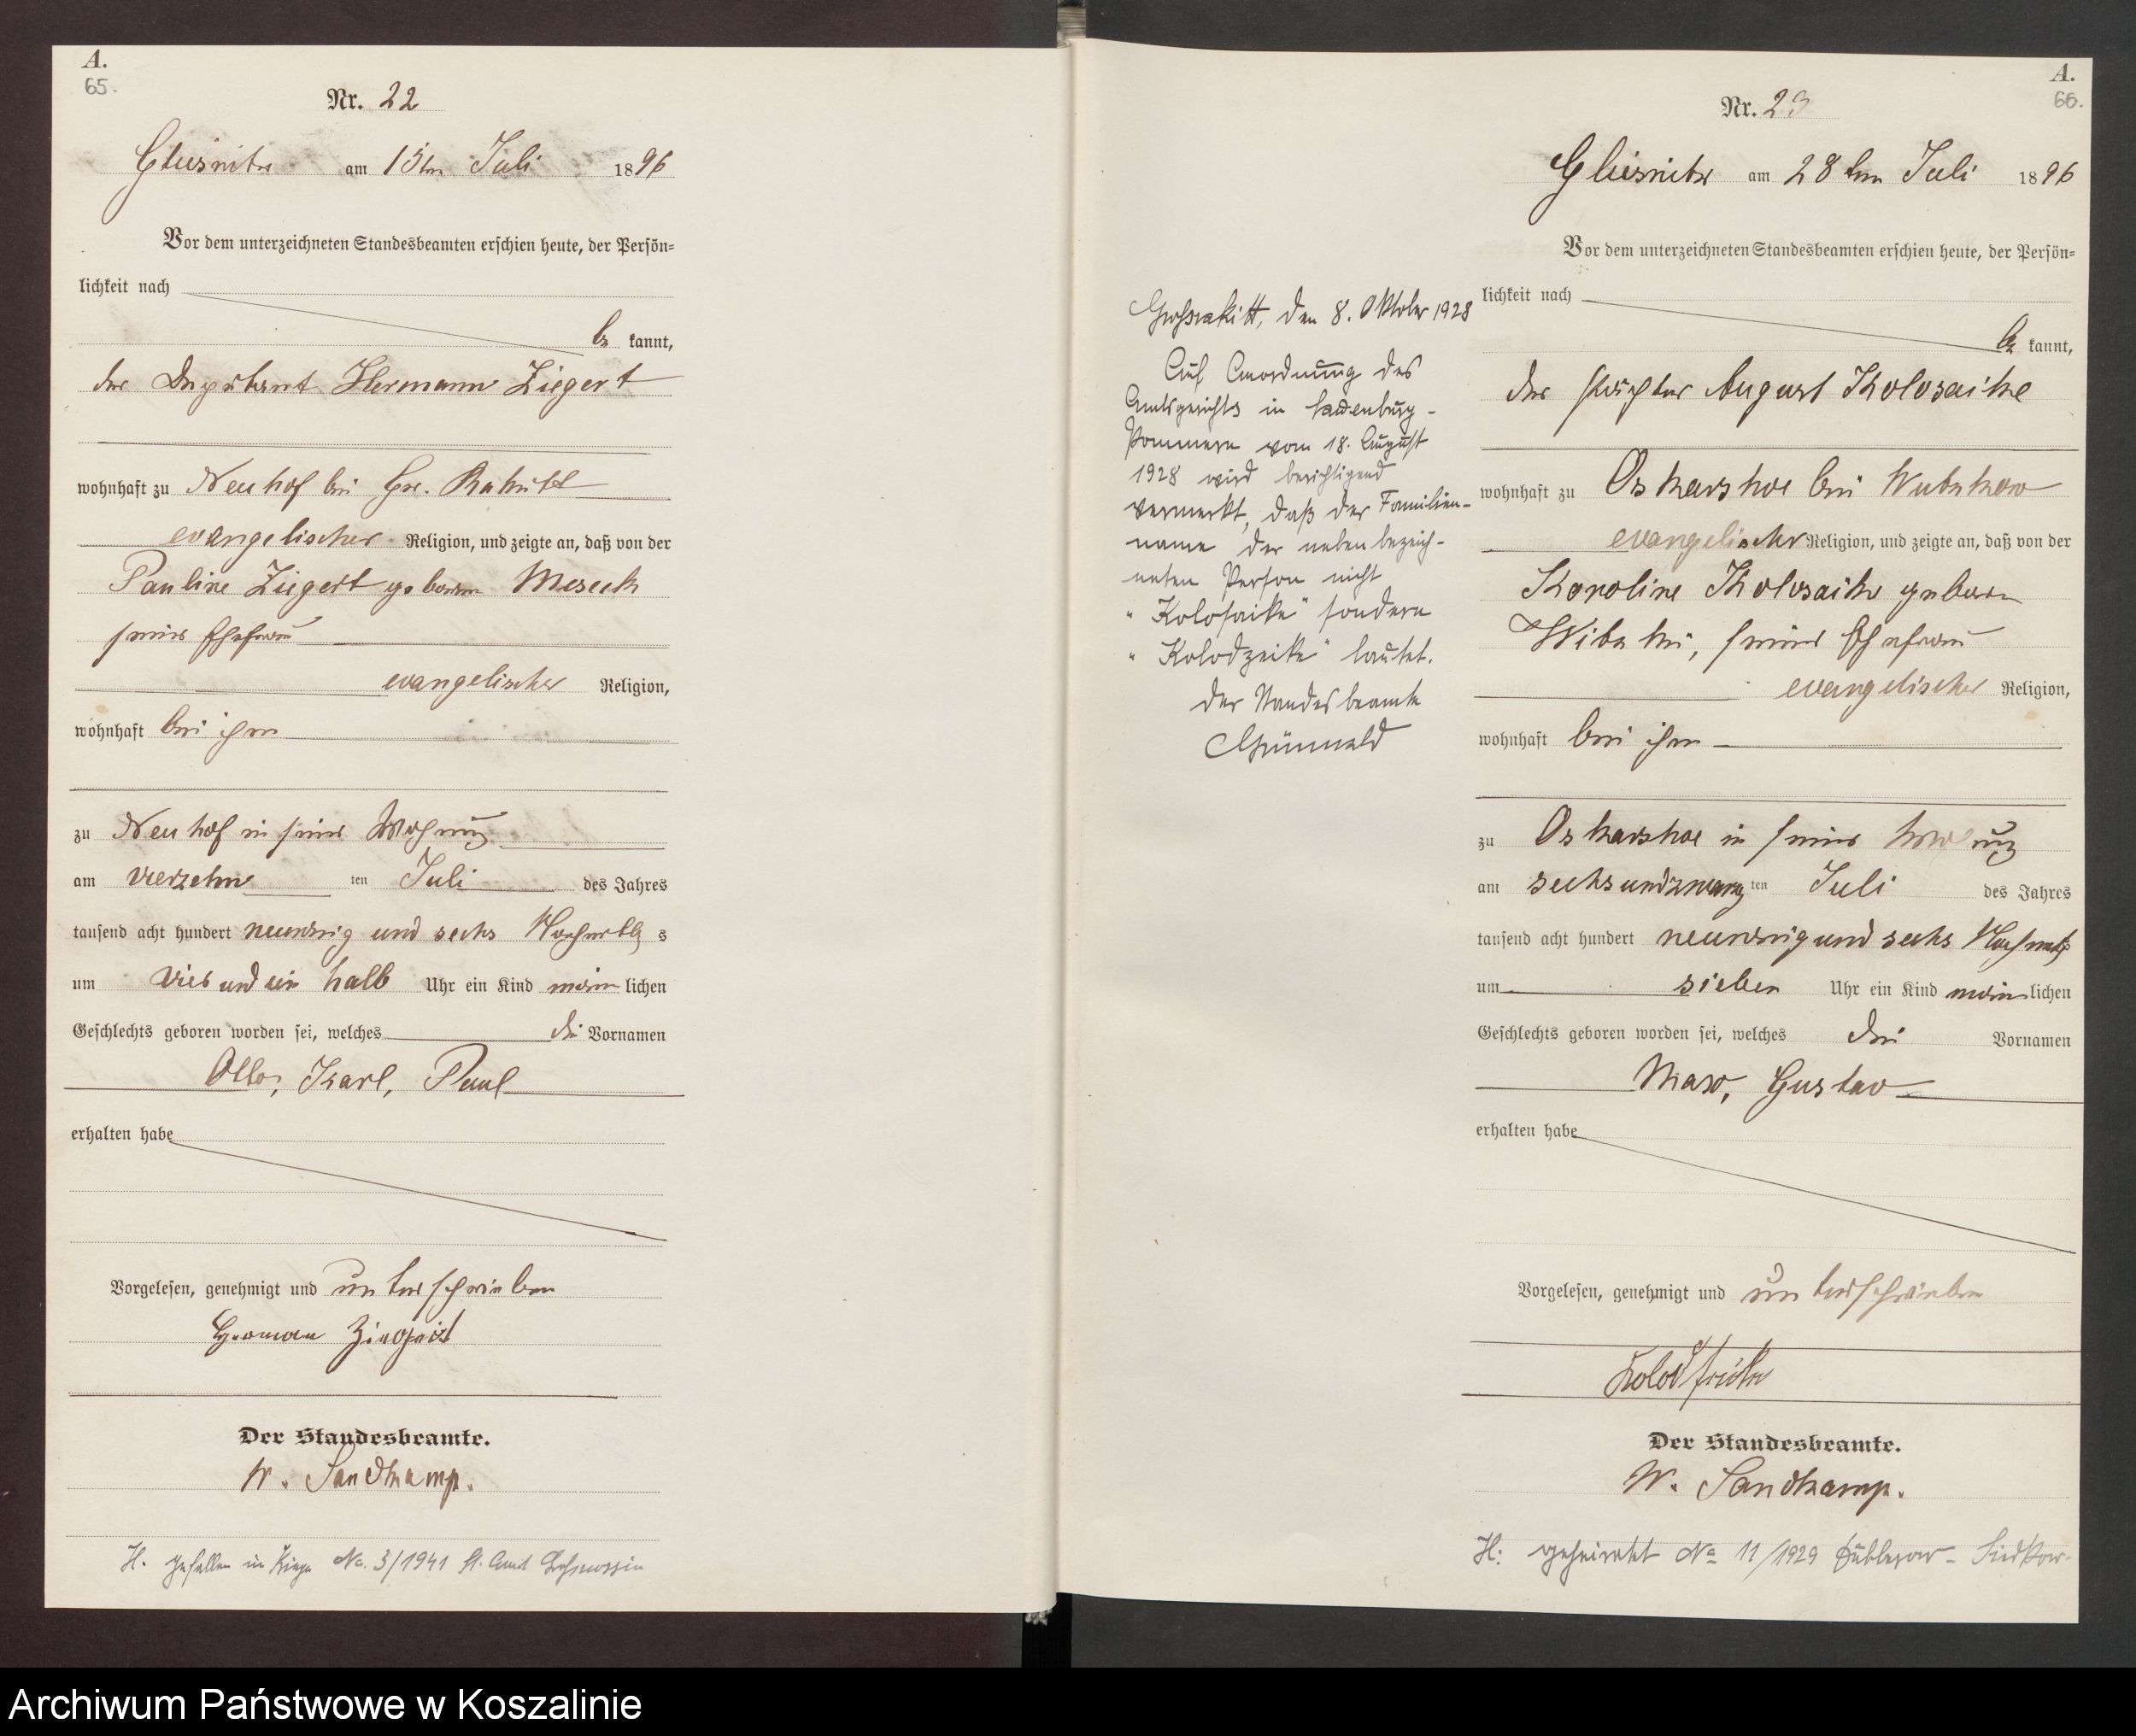 A.
65.
Nr. 22
Glusnitz am 15ten Juli 1896
Vor dem unterzeichneten Standesbeamten erschien heute, der Persön=
lichkeit nach
be kannt,
der Deputant Hermann Ziegert
wohnhaft zu Neuhof bei Gr. Rakitt
evangelischer Religion, und zeigte an, daß von der
Pauline Ziegert geboren Meseck
seiner Ehefrau
evangelischer Religion,
wohnhaft bei ihm
zu Neuhof in seiner Wohnung
am vierzehn ten Juli des Jahres
tausend acht hundert neunzig und sechs Nachmittags
um vier und ein halb Uhr ein Kind männ lichen
Geschlechts geboren worden sei, welches die Vornamen
Otto, Karl, Paul
erhalten habe
Vorgelesen, genehmigt und unterschrieben
Herman Ziegert
Der Standesbeamte.
W. Sandkamp.
H. gefallen im Kriege No. 3/1941 St. Amt
A.
66.
Nr. 23
Glusnitz am 28ten Juli 1896
Vor dem unterzeichneten Standesbeamten erschien heute, der Persön=
lichkeit nach
be kannt,
der Pächter August Kolosaike
wohnhaft zu Oskarshoe bei Wutzkow
evangelischer Religion, und zeigte an, daß von der
Karoline Kolosaike geboren
Wibatzki, seiner Ehefrau
evangelischer Religion,
wohnhaft bei ihm
zu Oskarshoe in seiner Wohnung
am sechsundzwanzig ten Juli des Jahres
tausend acht hundert neunzig und sechs Nachmittags
um sieben Uhr ein Kind männ lichen
Geschlechts geboren worden sei, welches die Vornamen
Max, Gustav
erhalten habe
Vorgelesen, genehmigt und unterschrieben
Der Standesbeamte.
W. Sandkamp.
H: geheiratet No 11/1929
Großrakitt, den 8. Oktober 1928
Auf Anordnung des
Amtsgerichts in Lauenburg -
Pommern vom 18. August
1928 wird berichtigend
vermerkt, daß der Familien-
name der nebenbezeich-
neten Person nicht
"Kolosaike" sondern
"Kolodzeike" lautet.
Der Standesbeamte
Grünwald
Archiwum Państwowe w Koszalinie